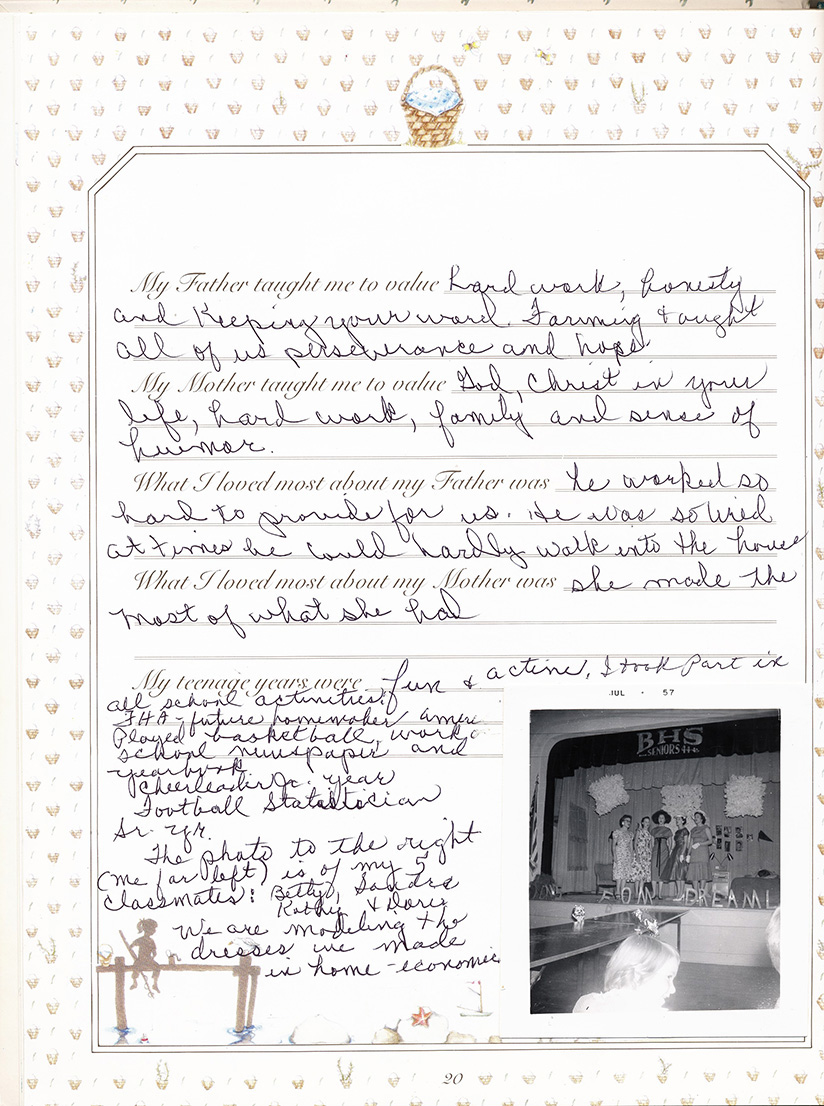 My Father taught me to value hard work, honesty
and Keeping your word. Farming taught
all of us perseverance and hope.
My Mother taught me to value God, Christ in your
life, hard work, family and sense of
humor.
What I loved most about my Father was he worked so
hard to provide for us. He was so tired
at times he could hardly walk into the house
What I loved most about my Mother was she made the
most of what she had
My teenage years were fun & active, I took Part in
all school activities:
FHA-future homemaker Ameri
Played basketball, work
school newspaper and
yearbook.
Cheerleader Jr. year
Football Statistician
Sr. yr.
The photo to the right
(me far left) is of my 5
classmates: Betty, Sandra
Kathy & Doris
We are modeling the
dresses we made
in home-economics
JUL • 57
BHS
SENIORS
DREAM
20